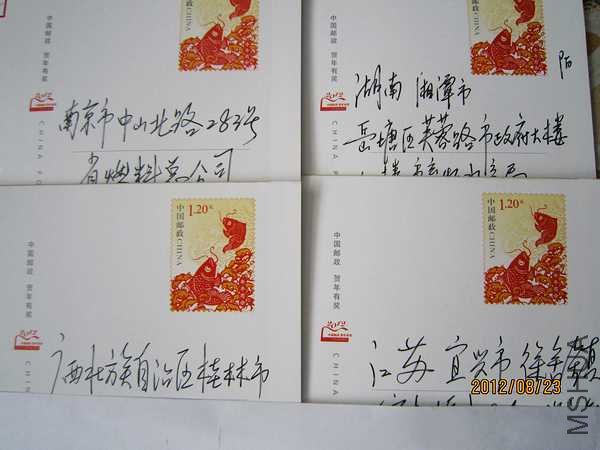 中国邮政 贺年有奖
2012
CHINA
中国邮政 CHINA
南京市中山北路283号
省燃料总公司
中国邮政 贺年有奖
2012
CHINA
中国邮政 CHINA
湖南 湘潭市
岳塘区芙蓉路市政府大楼
中国邮政 贺年有奖
2012
CHINA
中国邮政 CHINA
1.20元
广西壮族自治区桂林市
中国邮政 贺年有奖
2012
CHINA
中国邮政 CHINA
1.20元
江苏 宜兴市 徐舍镇
2012/08/23